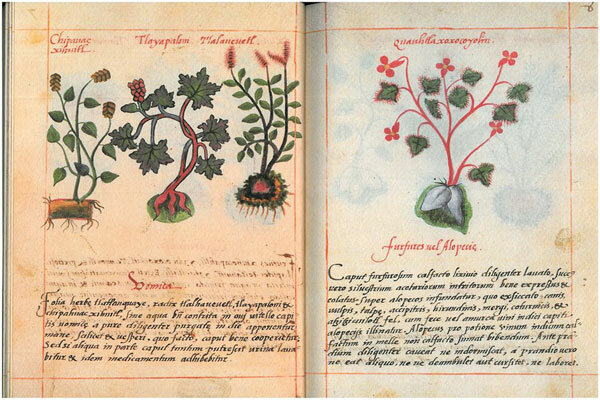 Chipauac
xihuitl.
Tlayapaloni
Tlalaueuetl.
Vomica.
Folia herbę tlatlanquaye, radix tlalhueuetl, tlayapaloni &
chipahuac xihuitl, sine aqua bñ contrita in oui uitello capi
tis uomicę a pure diligenter purgatę in die apponentur
mane, scilicet & uesperi. quo facto, caput bene cooperietur.
Sed si aliqua in parte caput tantum putrescat urina laua
bitur & idem medicamentum adhibebitur.
8
Quauhtla xoxocoyolin.
Furfures uel Alopecis.
Caput furfurosum calfacto lixiuio diligenter lauato, succo
uero siluestrium acetariorum intritorum bene expressus &
colatus super alopecos infundatur, quo exsiccato canis,
uulpis, talpę, accipitris, hirundinis, mergi, coturnicis, &
atzitzicuilotl fel, cum fece uel amurca uini indici capiti
alopecijs illinatur. Alopecus pro potione uinum indicum cal
factum in melle non calfacto sumat bibendum. Ante prā
dium diligenter caueat ne indormiscat, a prandio uero
ne eat aliquo, no ne deambulet aut cursitet, ne laboret.